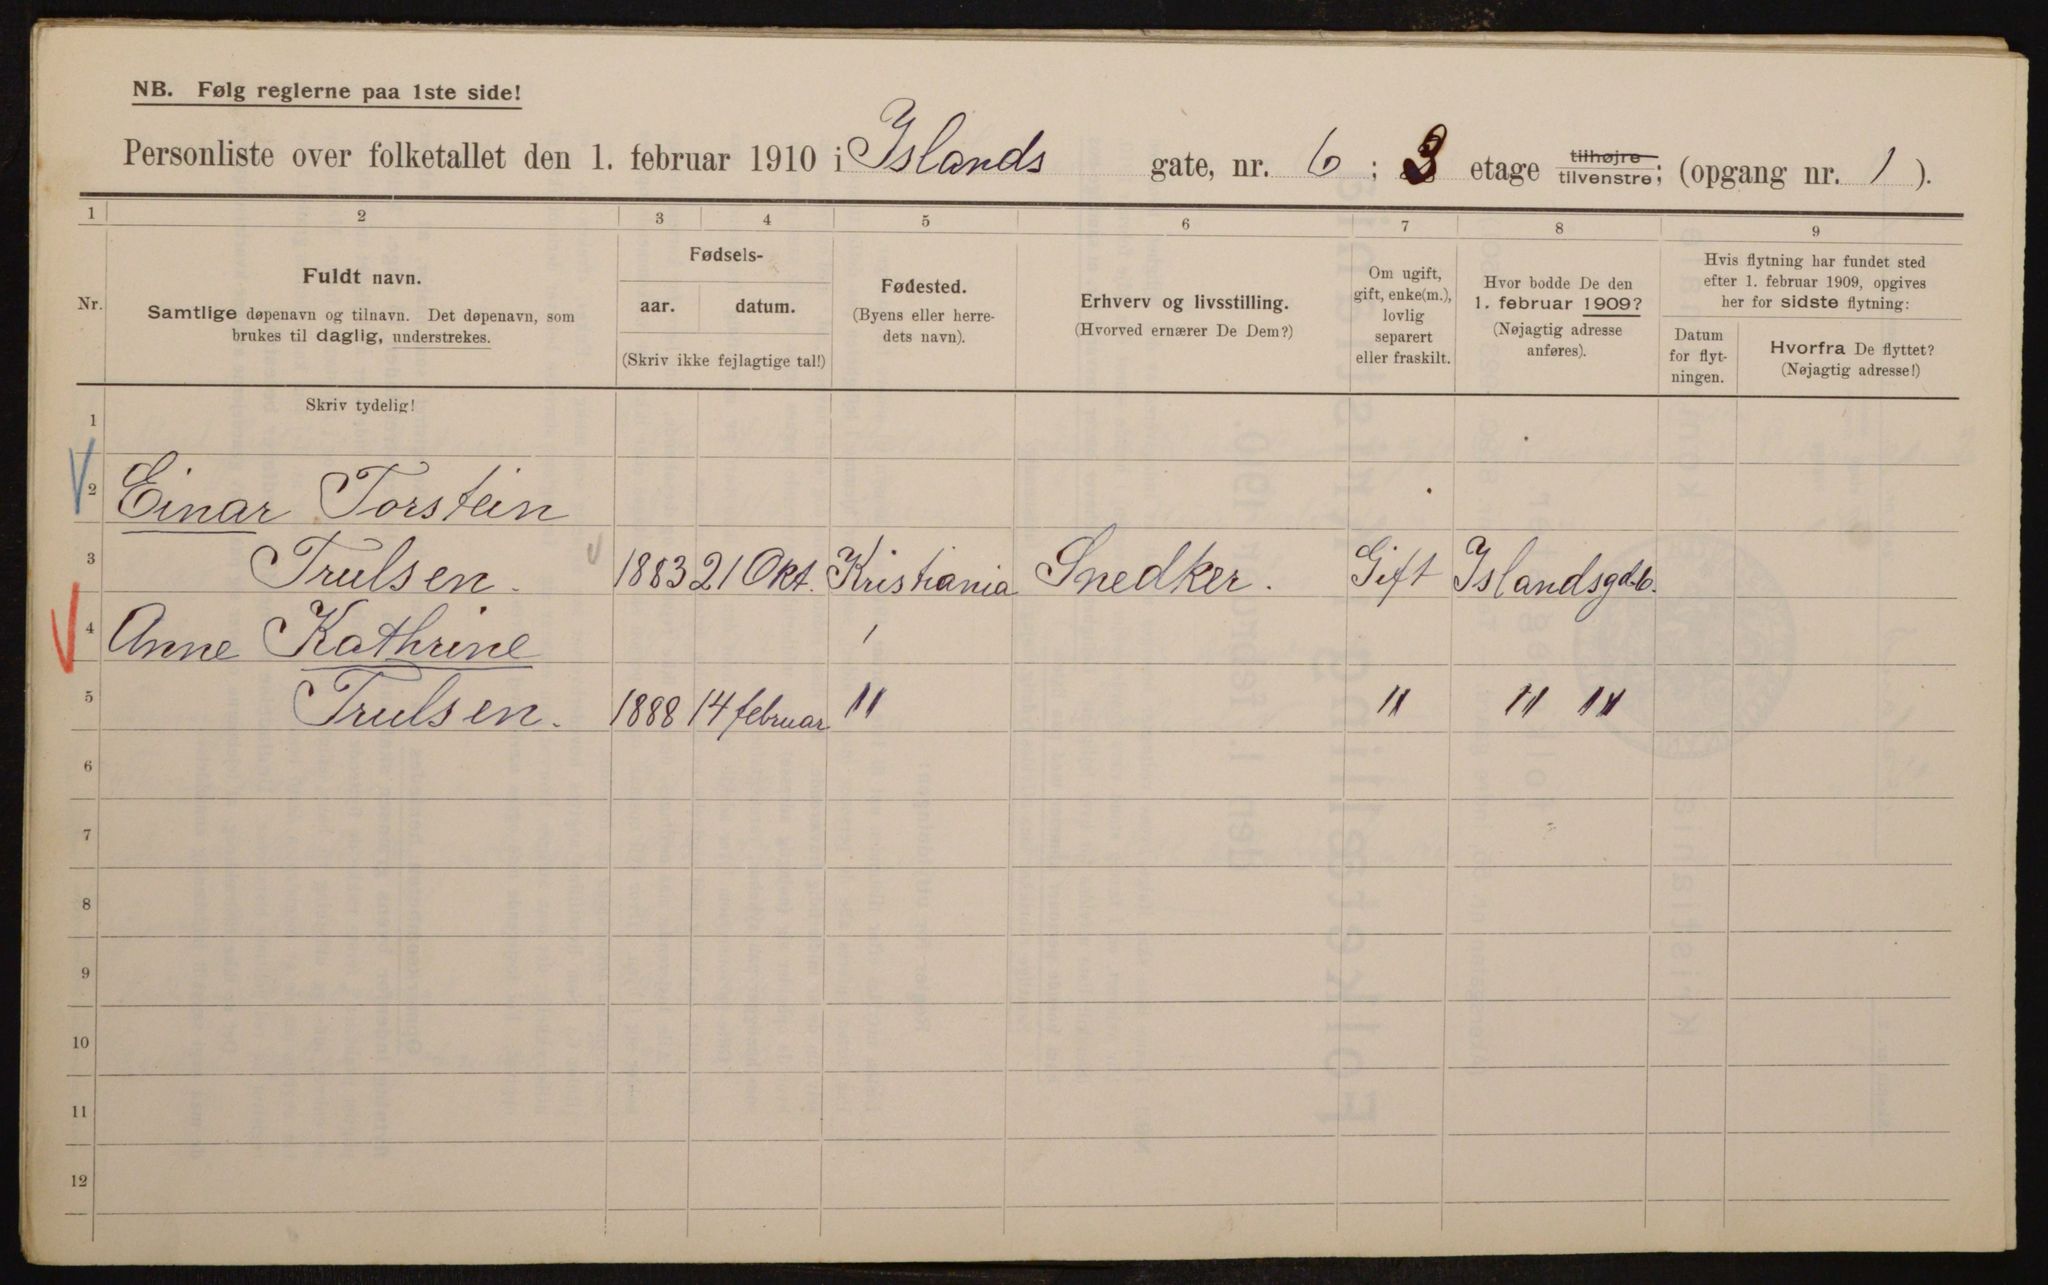 NB. Følg reglerne paa 1ste side!
Personliste over folketallet den 1. februar 1910 i Islands gate, nr. 6 ; 3 etage tilhøjre tilvenstre; (opgang nr. 1 ).
1 2 3 4 5 6 7 8 9
Nr.
Fuldt navn.
Samtlige døpenavn og tilnavn. Det døpenavn, som
brukes til daglig, understrekes.
Fødsels-
aar. datum.
(Skriv ikke fejlagtige tal!)
Fødested.
(Byens eller herre-
dets navn).
Erhverv og livsstilling.
(Hvorved ernærer De Dem?)
Om ugift,
gift, enke(m.),
lovlig
separert
eller fraskilt.
Hvor bodde De den
1. februar 1909?
(Nøjagtig adresse
anføres).
Hvis flytning har fundet sted
efter 1. februar 1909, opgives
her for sidste flytning:
Datum
for flyt-
ningen.
Hvorfra De flyttet?
(Nøjagtig adresse!)
Skriv tydelig!
1
2 Einar Torstein
3 Trulsen. 1883 21 Okt. Kristiania Snedker. Gift Islandsgd. 6.
4 Anne Kathrine
5 Trulsen. 1888 14 februar " " " "
6
7
8
9
10
11
12